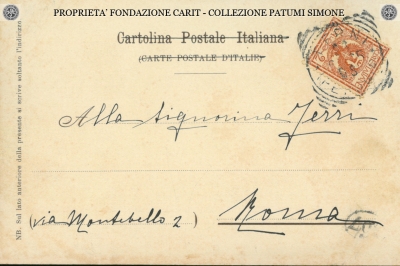 PROPRIETA' FONDAZIONE CARIT - COLLEZIONE PATUMI SIMONE
Cartolina Postale Italiana
(CARTE POSTALE D'ITALIE)
NB. Sul lato anteriore della presente si scrive soltanto l'indirizzo
Alla Signorina Terri
(via Montebello 2) Roma